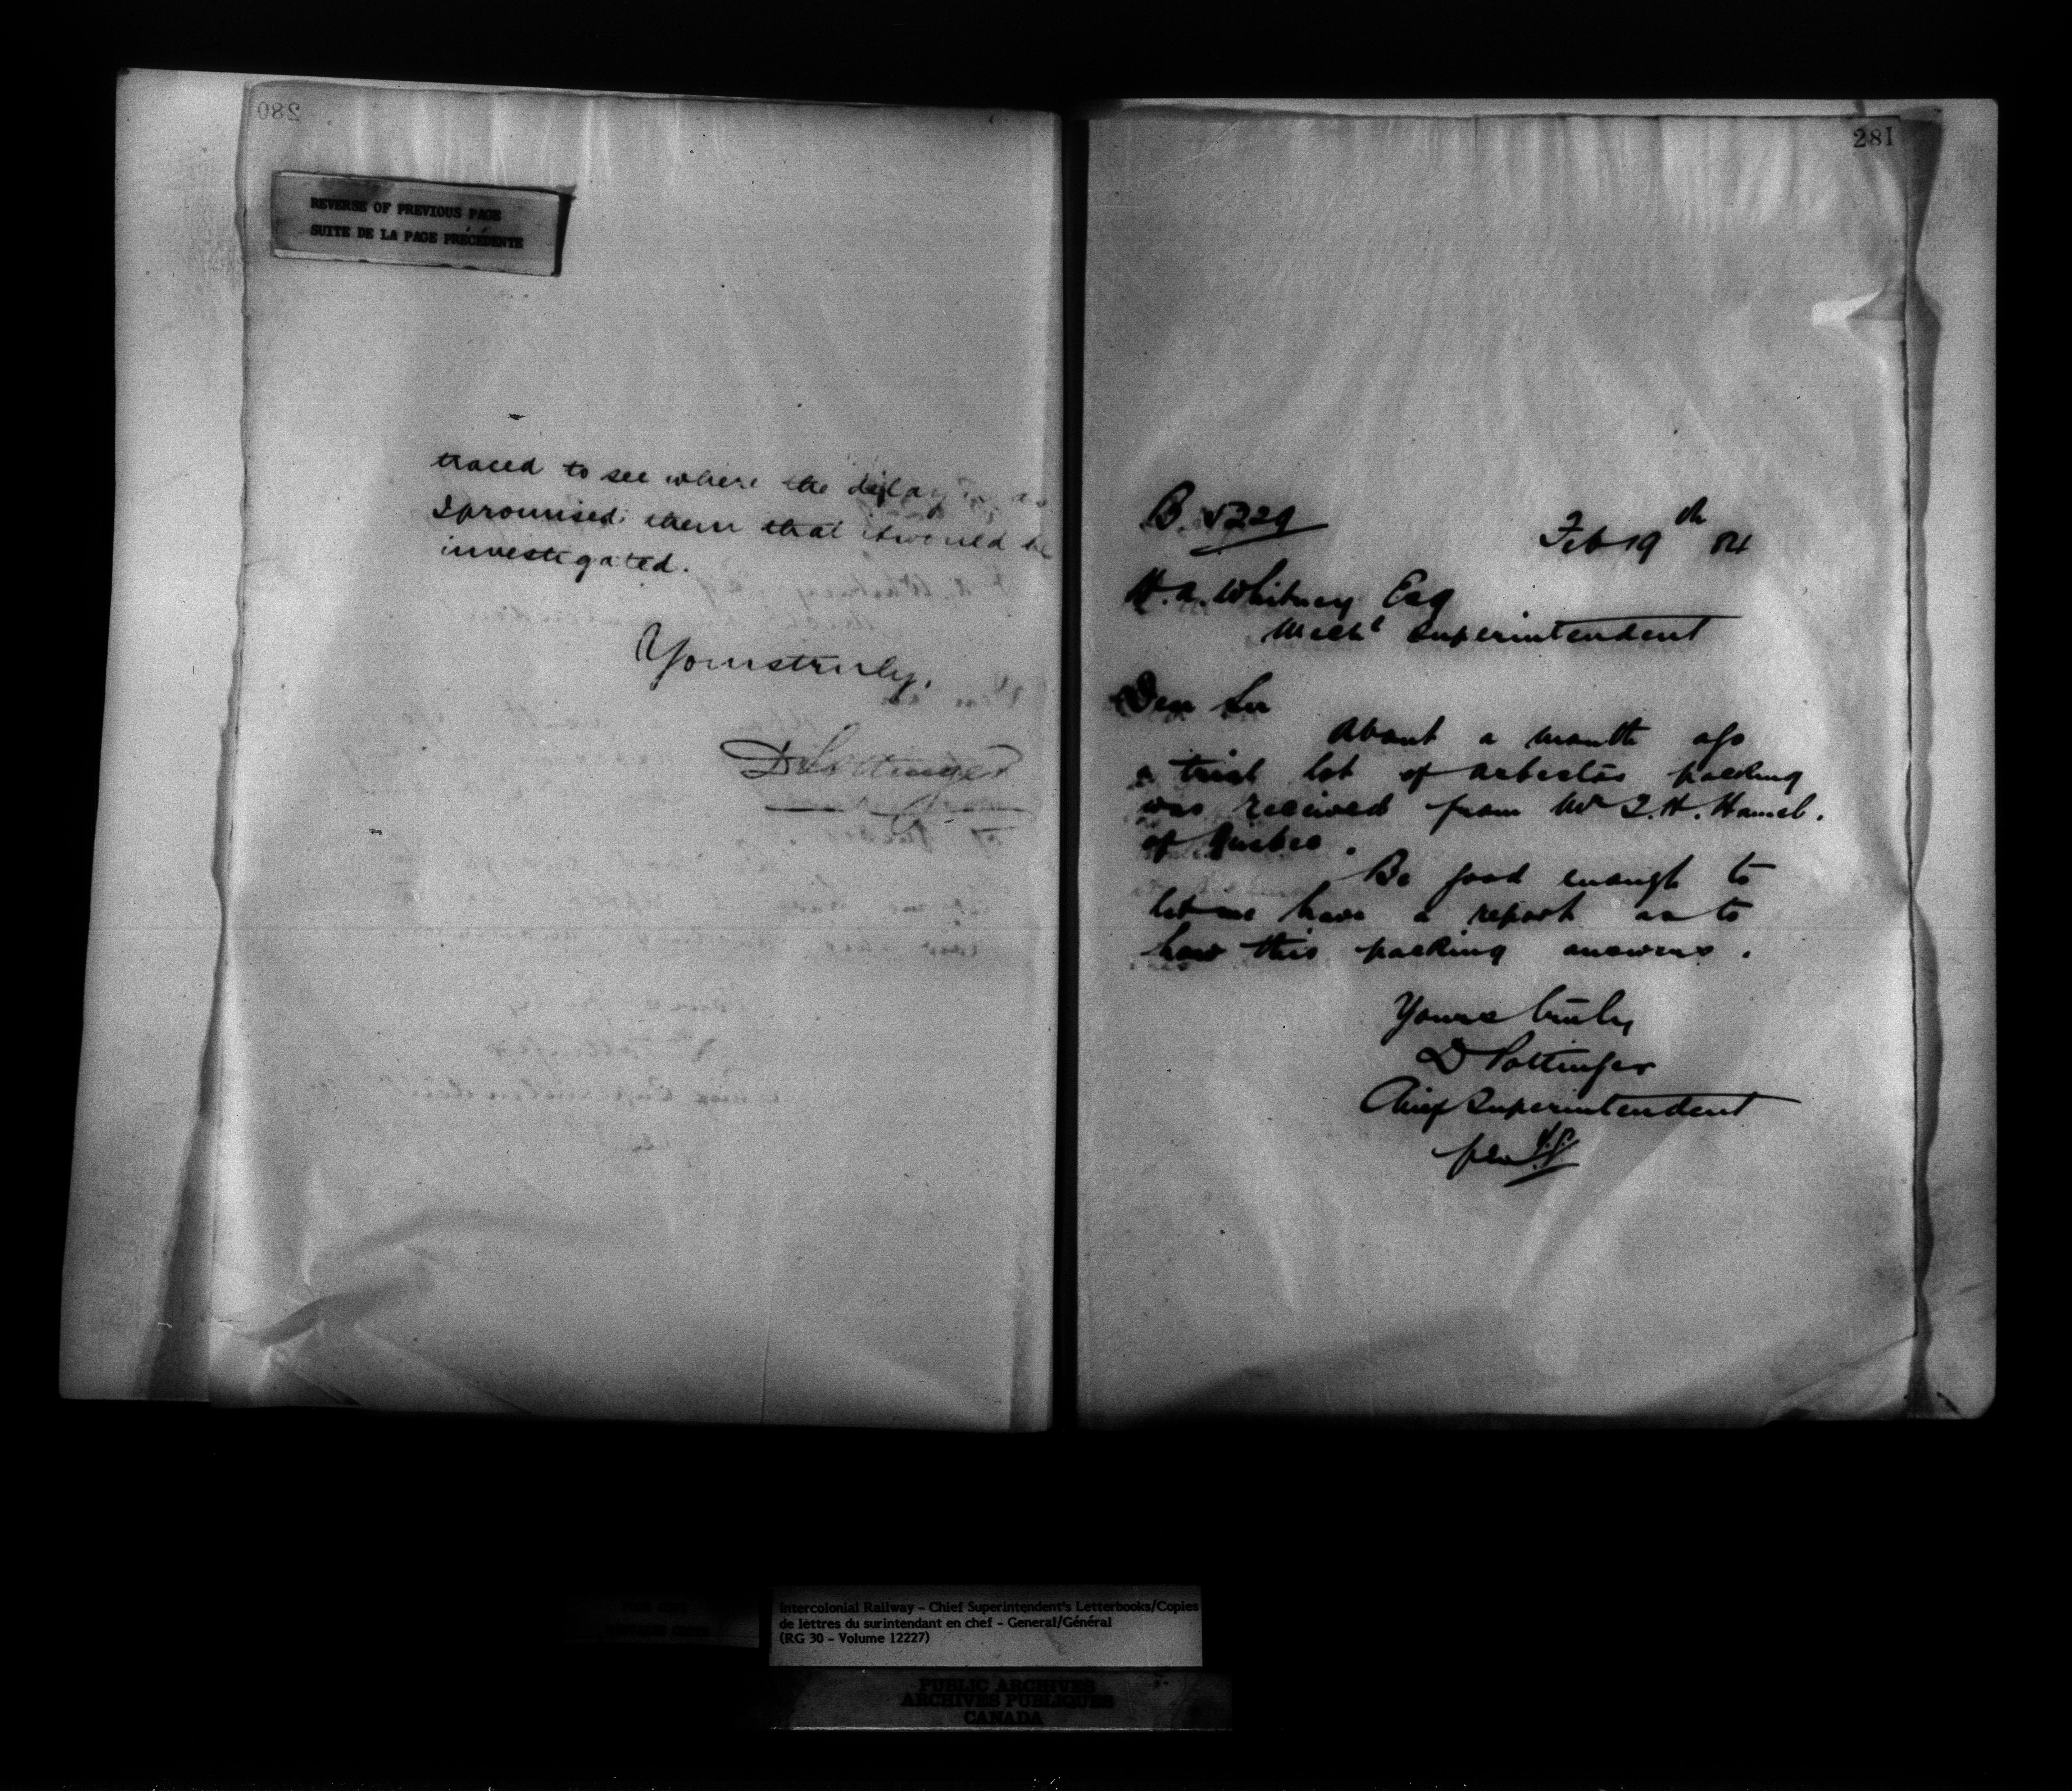 280
REVERSE OF PREVIOUS PAGE
SUITE DE LA PAGE PRÉCÉDENTE
traced to see where the delay is as
I promised them that it would be
investigated.
Yours truly,
D Pottinger
281
B. 5229
Feb 19th 84
H. A. Whitney Esq
Mechl Superintendent
Dear Sir
About a month ago
a trial lot of asbestos packing
was received from Mr T. H. Hamel.
of Quebec.
Be good enough to
let me have a report as to
how this packing answers.
Yours truly
D Pottinger
Chief Superintendent
per
Intercolonial Railway – Chief Superintendent's Letterbooks/Copies
de lettres du surintendant en chef – General/Général
(RG 30 – Volume 12227)
PUBLIC ARCHIVES
ARCHIVES PUBLIQUES
CANADA